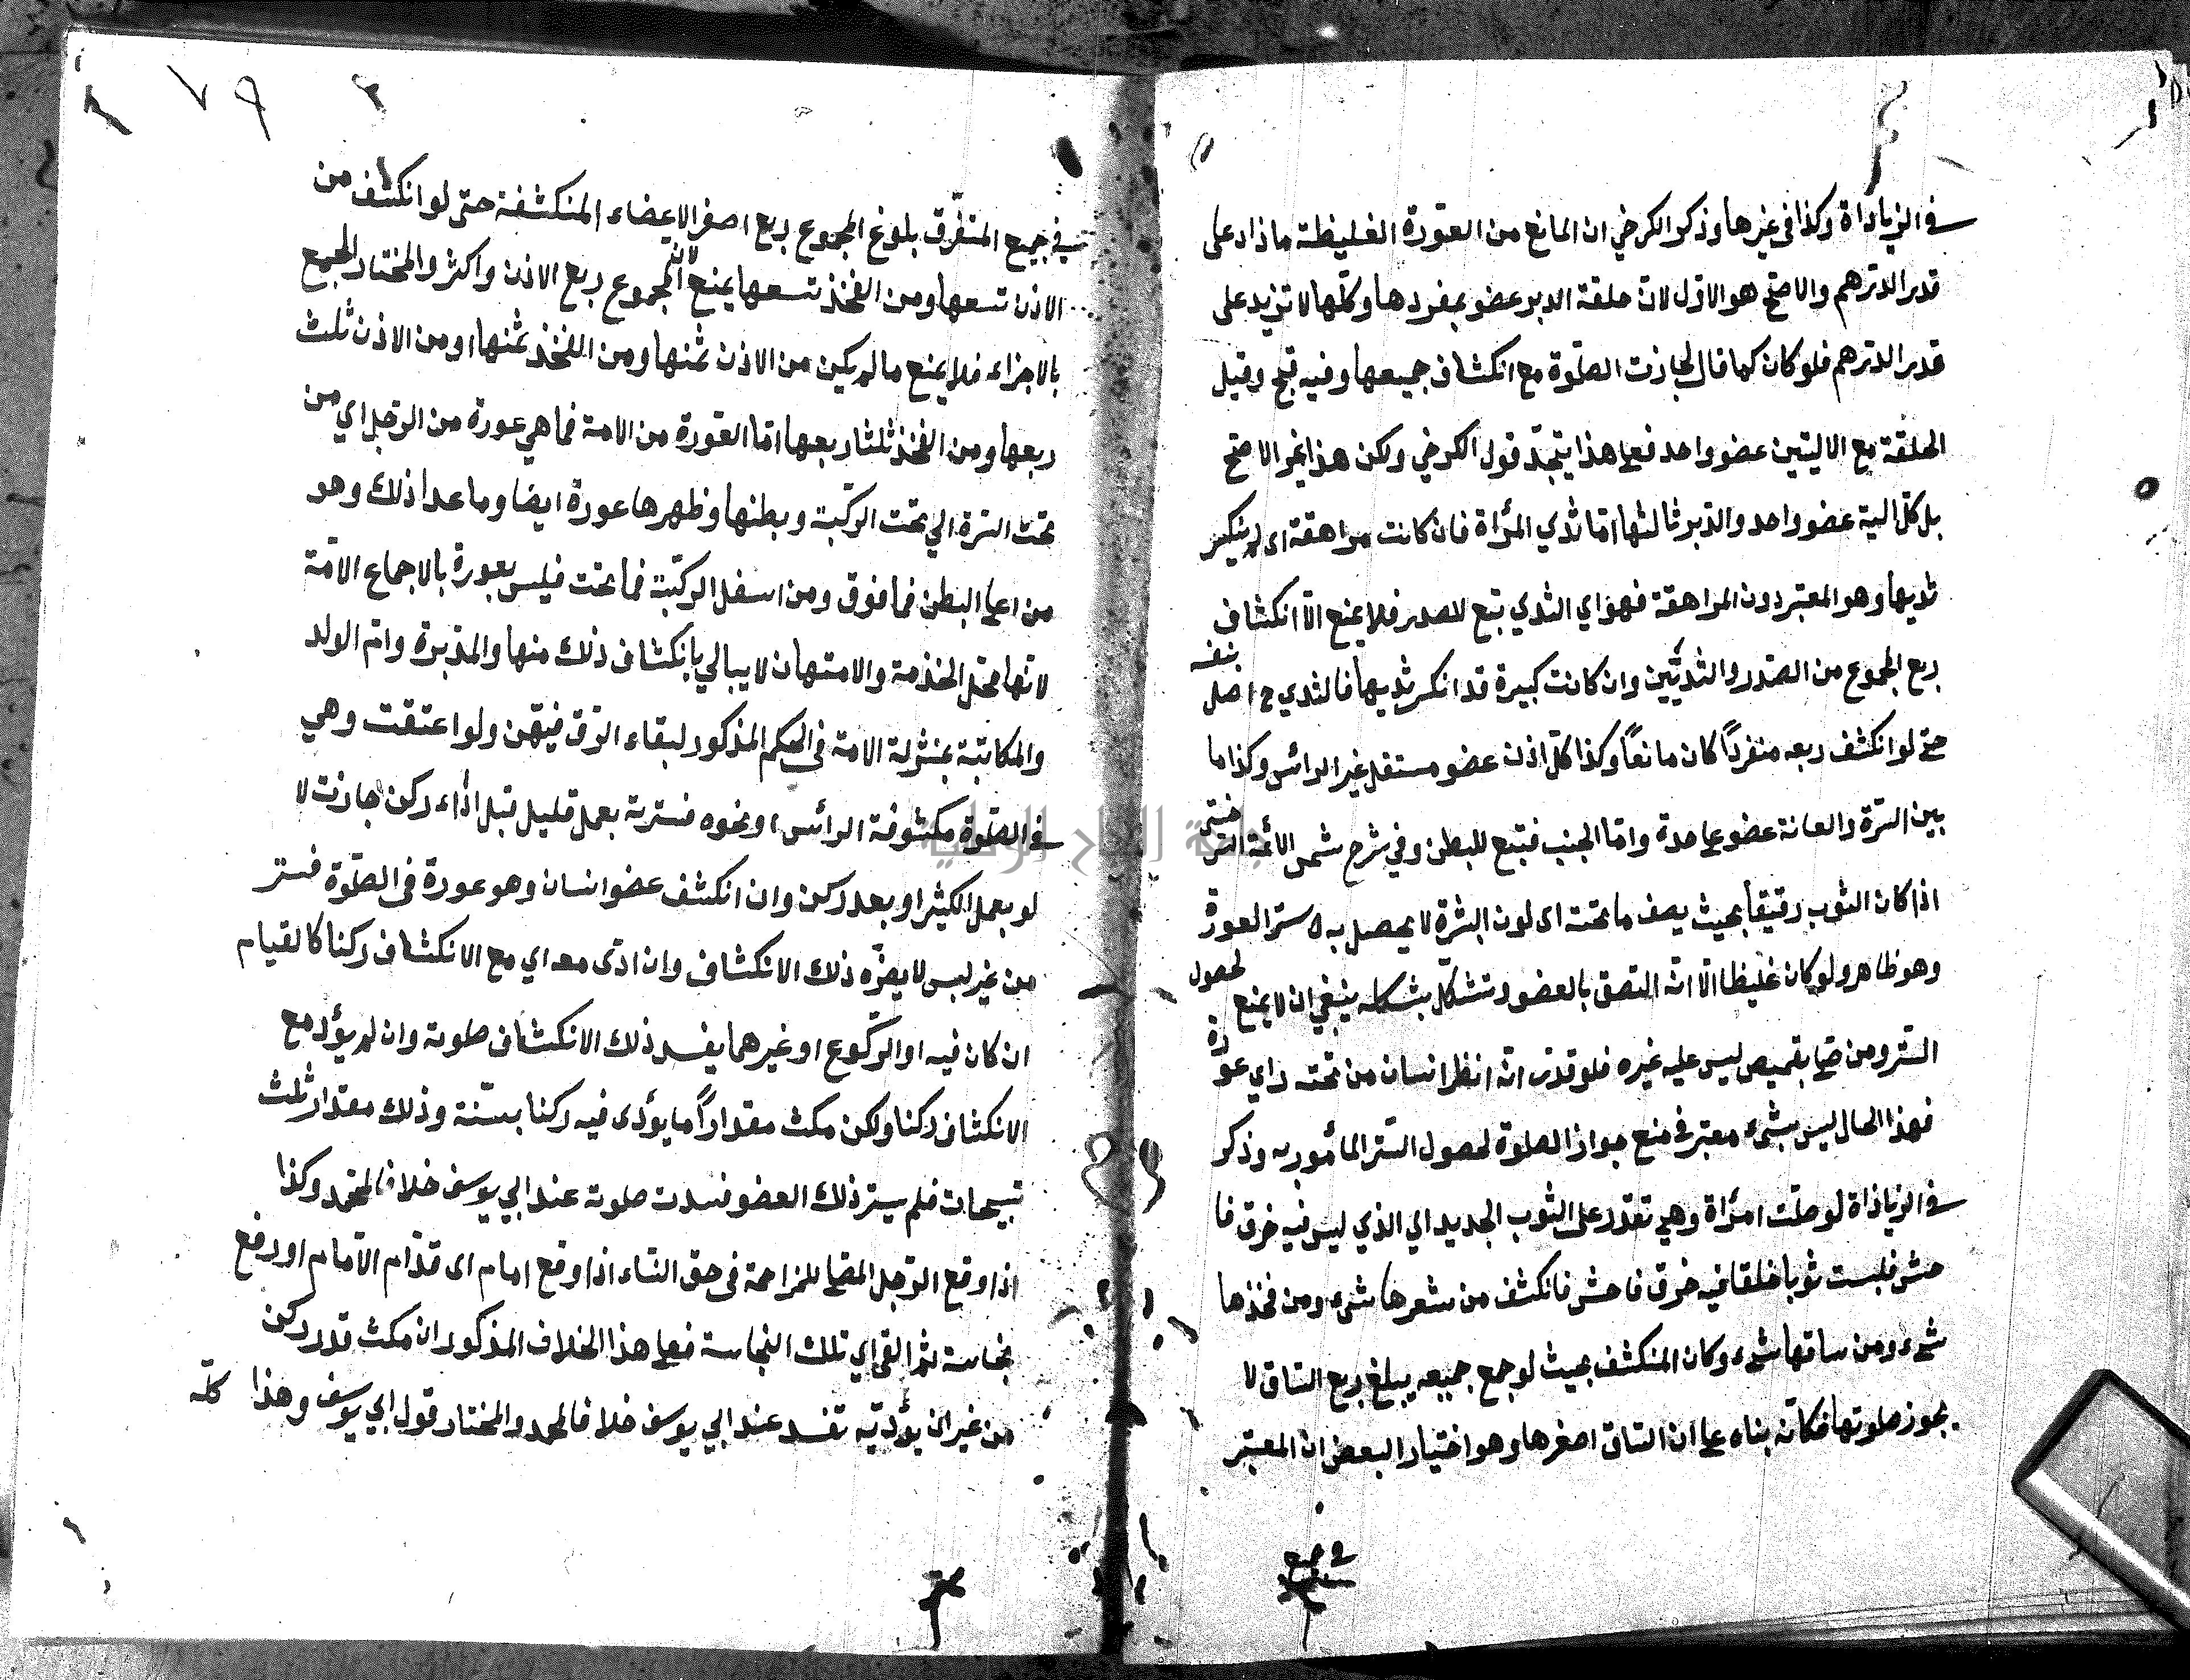 في الزيادات وكذا في غيرها وذكر الكرخي ان المانع من العورة الغليظة ما زاد على
قدر الدرهم والاصح هو الاول لان حلقة الدبر عضو بمفردها وكلها لا تزيد على
قدر الدرهم فلو كان كما قال لجازت الصلوة مع انكشاف جميعها وفيه قبح وقيل
الحلقة مع الاليتين عضو واحد فعلى هذا يتجه قول الكرخي ولكن هذا غير الاصح
بل كل الية عضو واحد والدبر ثالثها اما ثدي المرأة فان كانت مراهقة اى لم ينكسر
ثديها وهو المعتبر دون المراهقة فهو اي الثدي تبع للصدر فلا يمنع الا انكشاف
ربع المجموع من الصدر والثديين وان كانت كبيرة قد انكسر ثديها فالثدي ح اصل بنفسه
حتى لو انكشف ربعه منفرداً كان مانعاً وكذا كل اذن عضو مستقل غير الرأس وكذا ما
بين السرة والعانة عضو على حدة واما الجنب فتبع للبطن وفي شرح شمس الأئمة السرخسي
اذا كان الثوب رقيقاً بحيث يصف ما تحته اى لون البشرة لا يحصل به ستر العورة
وهو ظاهر ولو كان غليظا الا انه التصق بالعضو وتشكل بشكله ينبغي ان لا يمنع لحصول
الستر ومن صلى بقميص ليس عليه غيره فلو قدر انه انظر انسان من تحته راي عورة
فهذا الحال ليس بشيء معتبر في منع جواز الصلوة لحصول الستر المأمور به وذكر
في الزيادات لو صلت امرأة وهي تقدر على الثوب الجديد اي الذي ليس فيه خرق فا
حش فلبست ثوبا خلقا فيه خرق فاحش فانكشف من شعرها شيء ومن فخذها
شيء ومن ساقها شيء وكان المنكشف بحيث لو جمع جميعه يبلغ ربع الساق لا
يجوز صلوتها فكانه بناه على ان الساق اصغرها وهو اختيار البعض ان المعتبر
في جميع
في جميع المتفرق بلوغ المجموع ربع اصغر الاعضاء المنكشفة حتى لو انكشف من
الاذن تسعها ومن الفخذ تسعها يمنع لان المجموع ربع الاذن واكثر والمختار الجمع
بالاجزاء فلا يمنع ما لم يكن من الاذن ثمنها ومن الفخذ ثمنها او من الاذن ثلث
ربعها ومن الفخذ ثلثا ربعها اما العورة من الامة فما هي عورة من الرجل اي من
تحت السرة الي تحت الركبة وبطنها وظهرها عورة ايضا وما عدا ذلك وهو
من اعلى البطن فما فوق ومن اسفل الركبة فما تحت فليس بعورة بالاجماع الامة
لانها محل الخدمة والامتهان لا يبالي بانكشاف ذلك منها والمدبرة وام الولد
والمكاتبة بمنزلة الامة في الحكم المذكور لبقاء الرق فيهن ولو اعتقت وهي
في الصلوة مكشوفة الرأس او نحوه فسترته بعمل قليل قبل اداء ركن جازت لا
لو بعمل الكثير او بعد ركن وان انكشف عضو انسان وهو عورة في الصلوة فستر
من غير لبس لا يضره ذلك الانكشاف وان ادى معه اي مع الانكشاف ركنا كالقيام
ان كان فيه او الركوع او غيرهما يفسد ذلك الانكشاف صلوته وان لم يؤد مع
الانكشاف ركنا ولكن مكث مقداراً ما يؤدى فيه ركنا بسنة وذلك مقدار ثلث
تسبيحات فلم يستر ذلك العضو فسدت صلوته عند ابي يوسف خلافا لمحمد وكذا
اذا وقع الرجل المصلي للمزاحمة في حق النساء اذا وقع امام اى قدام الامام او رفع
نجاسة ثم القى اي تلك النجاسة فعلى هذا الخلاف المذكور ان مكث قدر ركن
من غير ان يؤديه تفسد عند ابي يوسف خلافا لمحمد والمختار قول ابي يوسف وهذا كله
جامعة النجاح الوطنية